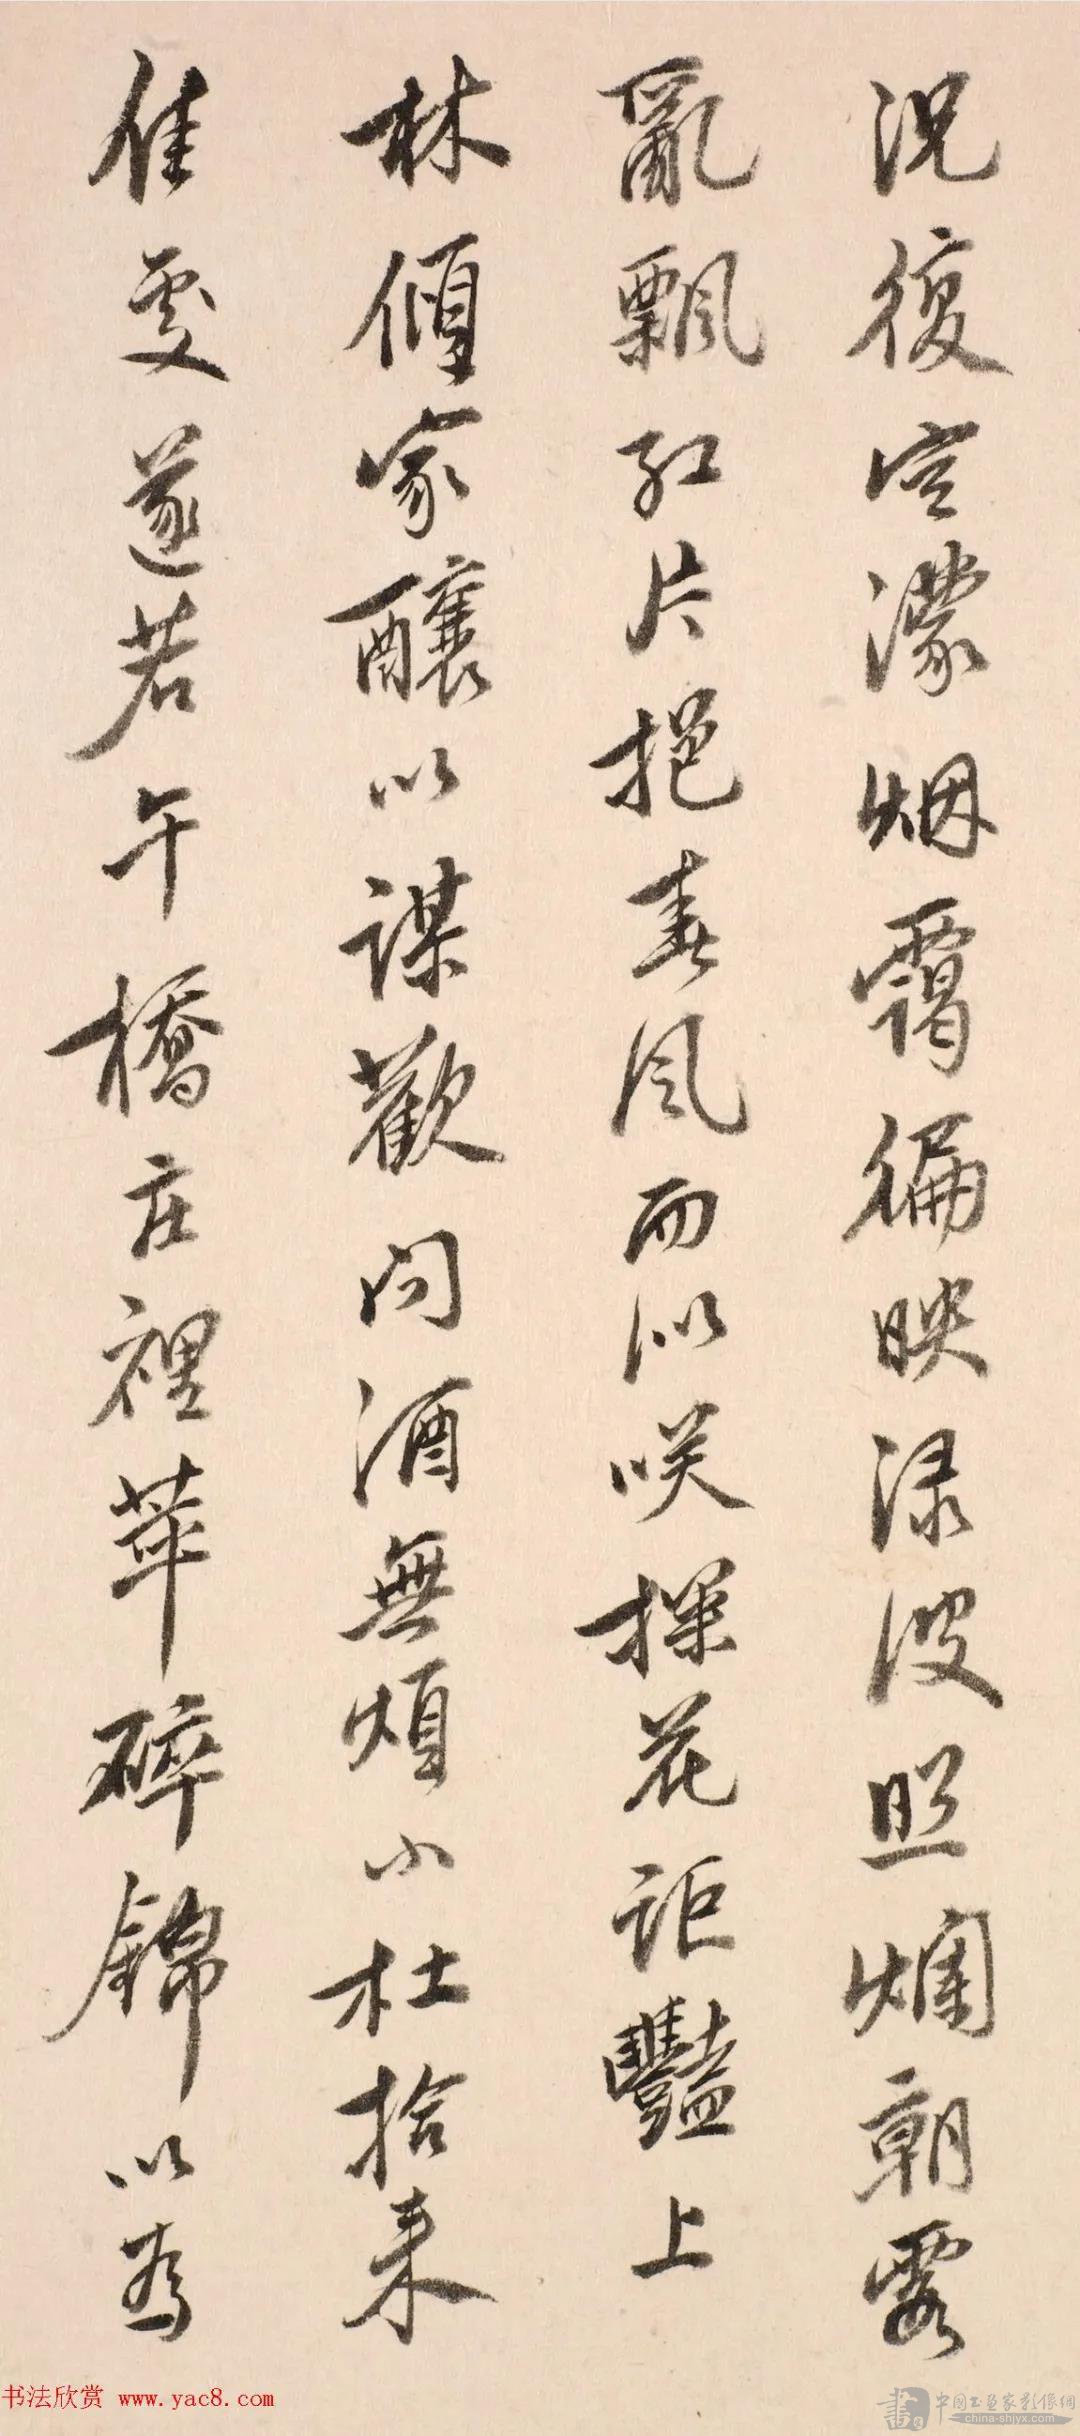 況復空濛烟靄徧映渌波照爛朝霞
亂飄紅片挹春風而似咲探花詎豔上
林傾家釀以謀歡問酒無煩小杜拾来
佳處遂若午橋庄裡華碎錦以為
书法欣赏 www.yac8.com
中国书画家影像網
china-shjyx.com